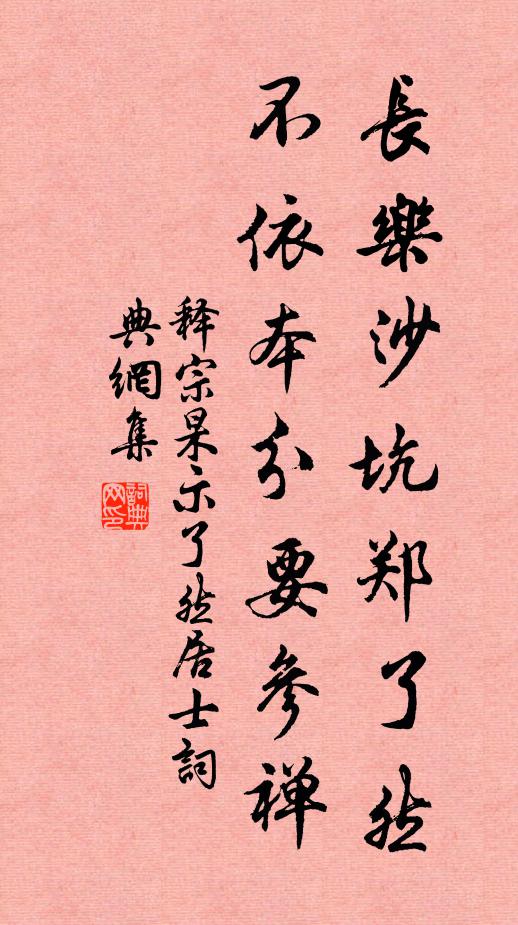 長樂沙坑郑了然
不依本分要參禅
释宗杲示了然居士詞
典網集
詞典网印